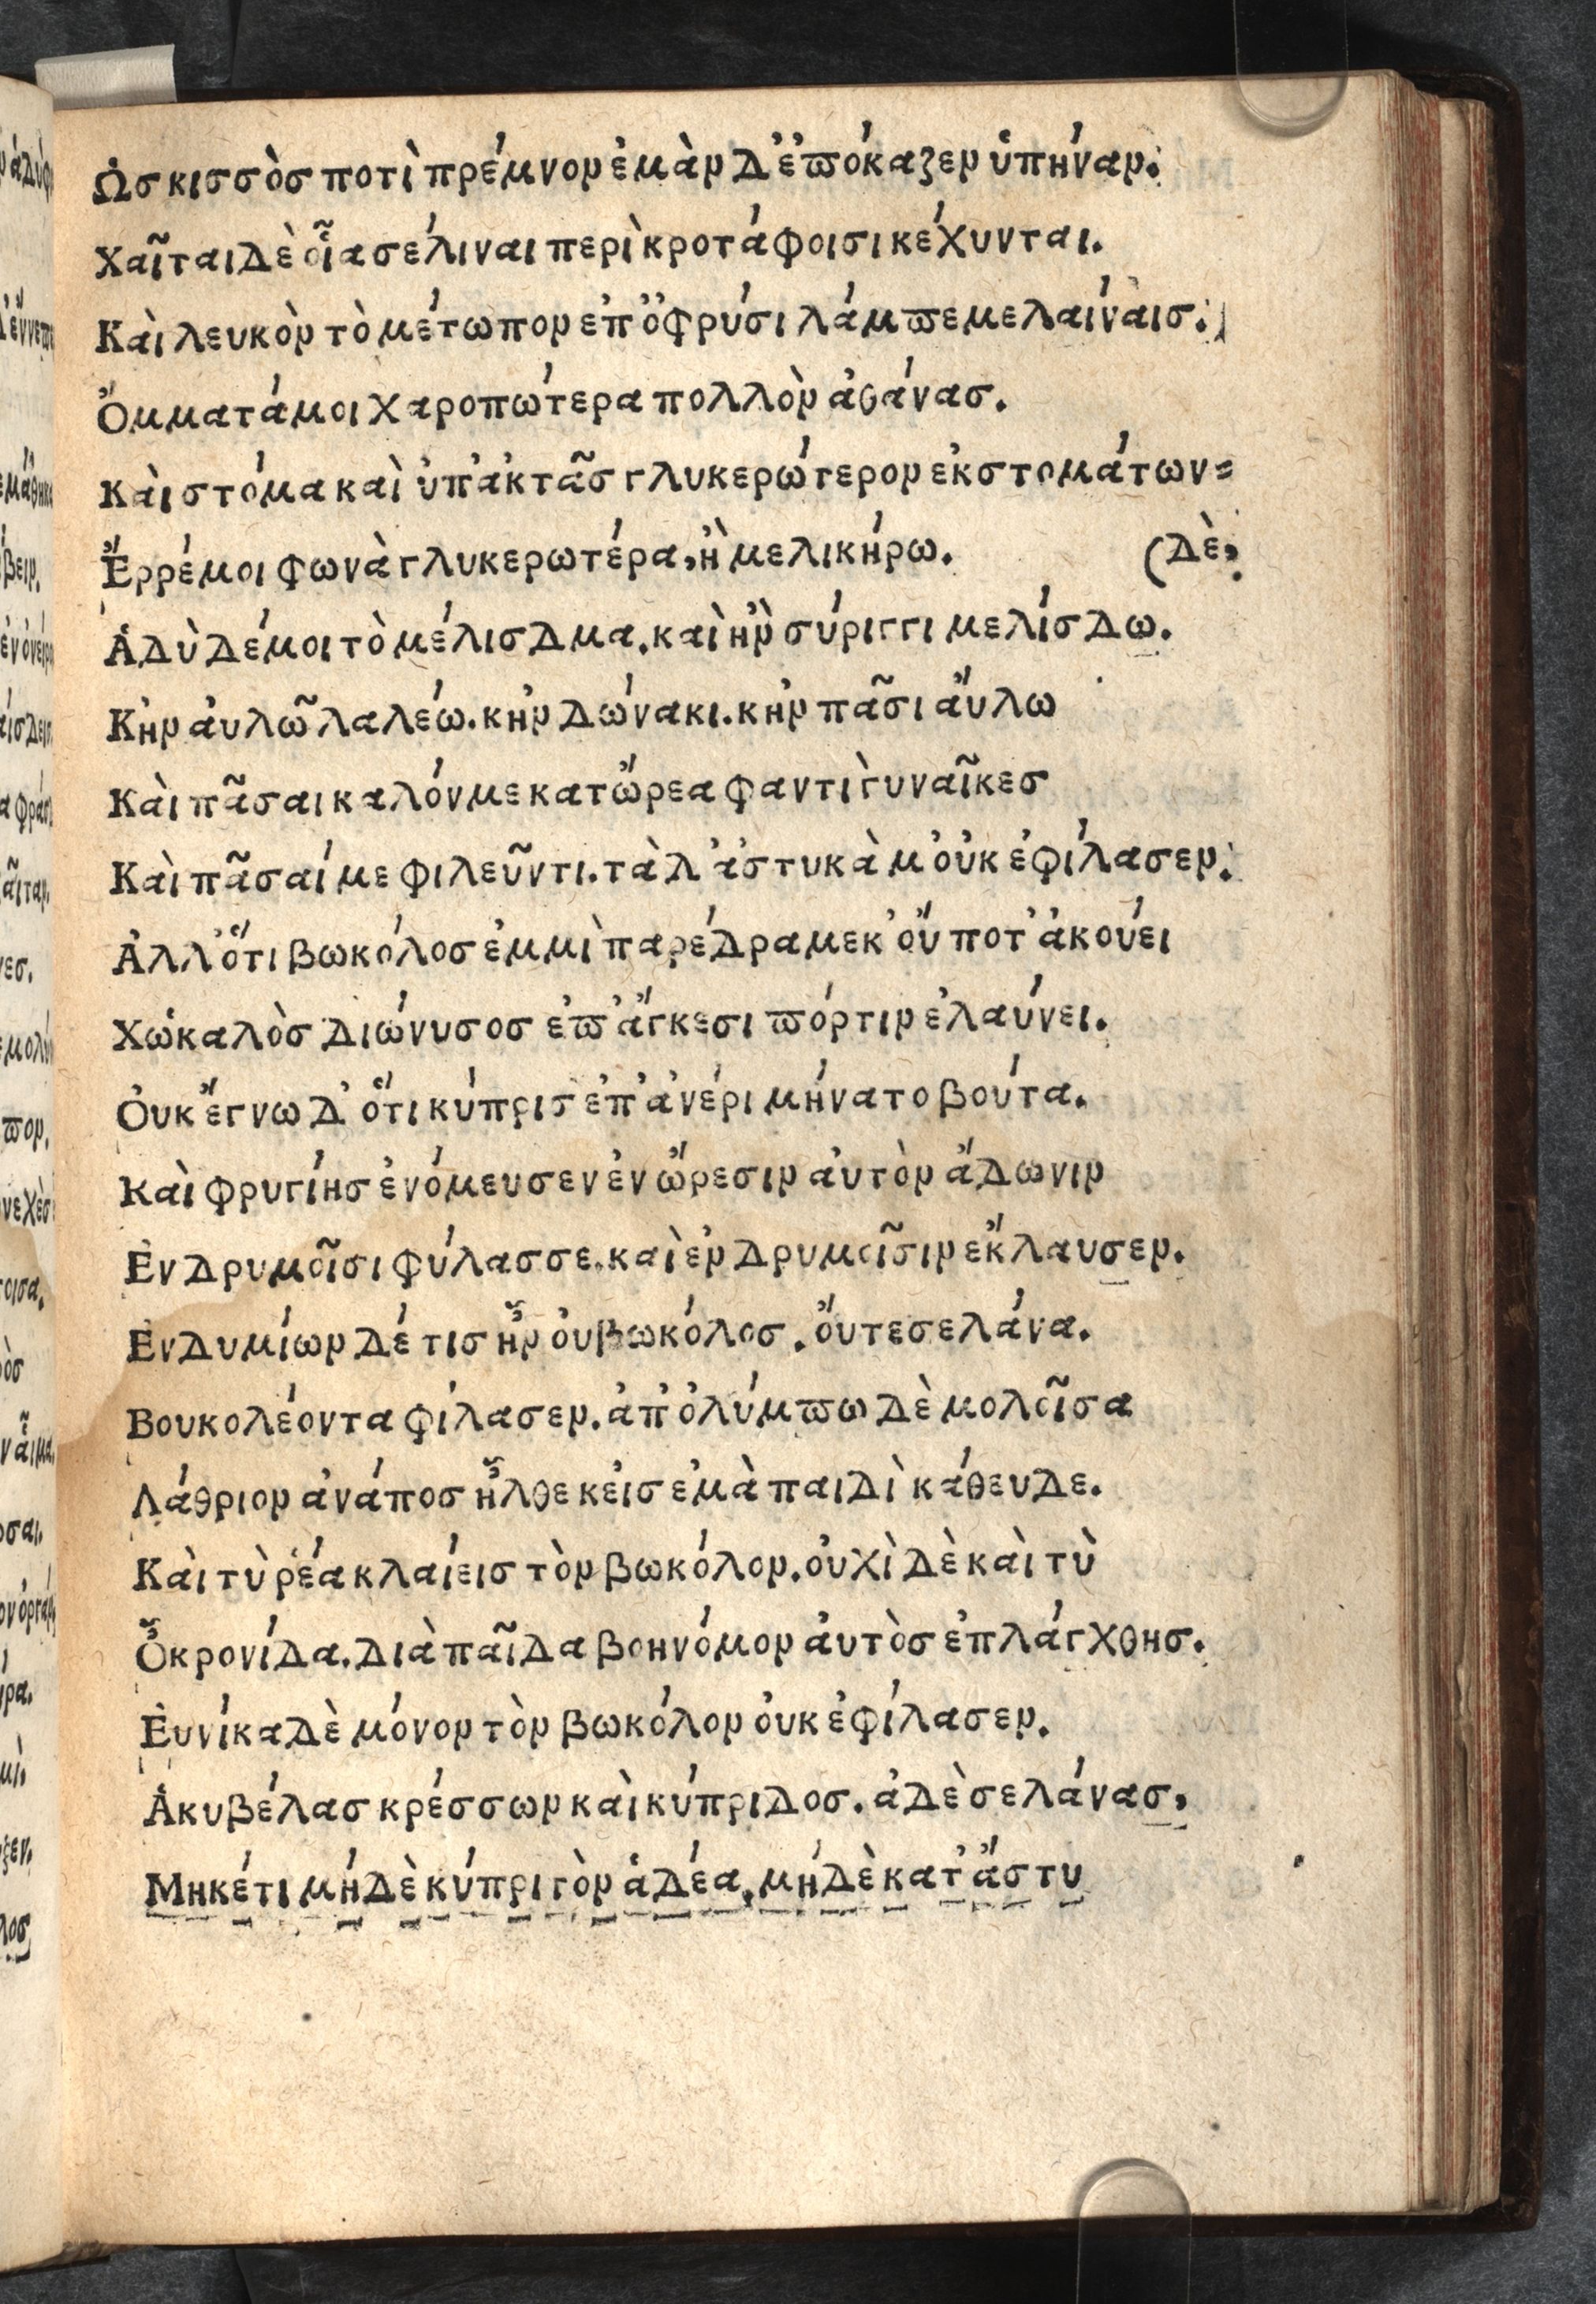 Ὡσ κισσὸσ ποτὶ πρέμνον ἐμὰν δ' ἐπύκαζεν ὑπήναν.
Χαῖται δὲ οἷα σέλιναι περὶ κροτάφοισι κέχυνται.
Καὶ λευκὸν τὸ μέτωπον ἐπ' ὀφρύσι λάμπε μελαίναισ.
Ὄμματά μοι χαροπώτερα πολλὸν ἀθάνασ.
Καὶ στόμα καὶ ὑπ' ἀκτᾶσ γλυκερώτερον ἐκ στομάτων=
Ἔρρέ μοι φωνὰ γλυκερωτέρα, ἢ μελικήρω. (δὲ,
Ἁδὺ δέ μοι τὸ μέλισδμα. καὶ ἢν σύριγγι μελίσδω.
Κἠν ἀυλῶ λαλέω. κἠν δώνακι. κἠν πᾶσι ἄυλω
Καὶ πᾶσαι καλόν με κατ' ὤρεα φαντὶ γυναῖκεσ
Καὶ πᾶσαί με φιλεῦντι. τὰ λ' ἀστυκὰ μ' ὀυκ ἐφίλασεν.
Ἀλλ' ὅτι βωκόλοσ ἐμμὶ παρέδραμε κ' ὄυ ποτ' ἀκούει
Χὠ καλὸσ διώνυσοσ ἐπ' ἄγκεσι πόρτιν ἐλαύνει.
Ὀυκ ἔγνω δ' ὅτι κύπρισ ἐπ' ἀνέρι μήνατο βούτα.
Καὶ φρυγίησ ἐνόμευσεν ἐν ὤρεσιν ἀυτὸν ἄδωνιν
Ἐν δρυμοῖσι φύλασσε. καὶ ἐν δρυμοῖσιν ἔκλαυσεν.
Ἐνδυμίων δέ τισ ἦν ὀυ βωκόλοσ. ὄυτε σελάνα.
Βουκολέοντα φίλασεν. ἀπ' ὀλύμπω δὲ μολοῖσα
Λάθριον ἀνάποσ ἦλθε κἐισ ἐμὰ παιδὶ κάθευδε.
Καὶ τὺ ῥέα κλαίεισ τὸν βωκόλον. ὀυχὶ δὲ καὶ τὺ
Ὦ κρονίδα. διὰ παῖδα βοηνόμον ἀυτὸσ ἐπλάγχθησ.
Ἐυνίκα δὲ μόνον τὸν βωκόλον ὀυκ ἐφίλασεν.
Ἁ κυβέλασ κρέσσων καὶ κύπριδοσ. ἁ δὲ σελάνασ,
Μηκέτι μήδὲ κύπρι τὸν ἁδέα. μήδὲ κατ' ἄστυ